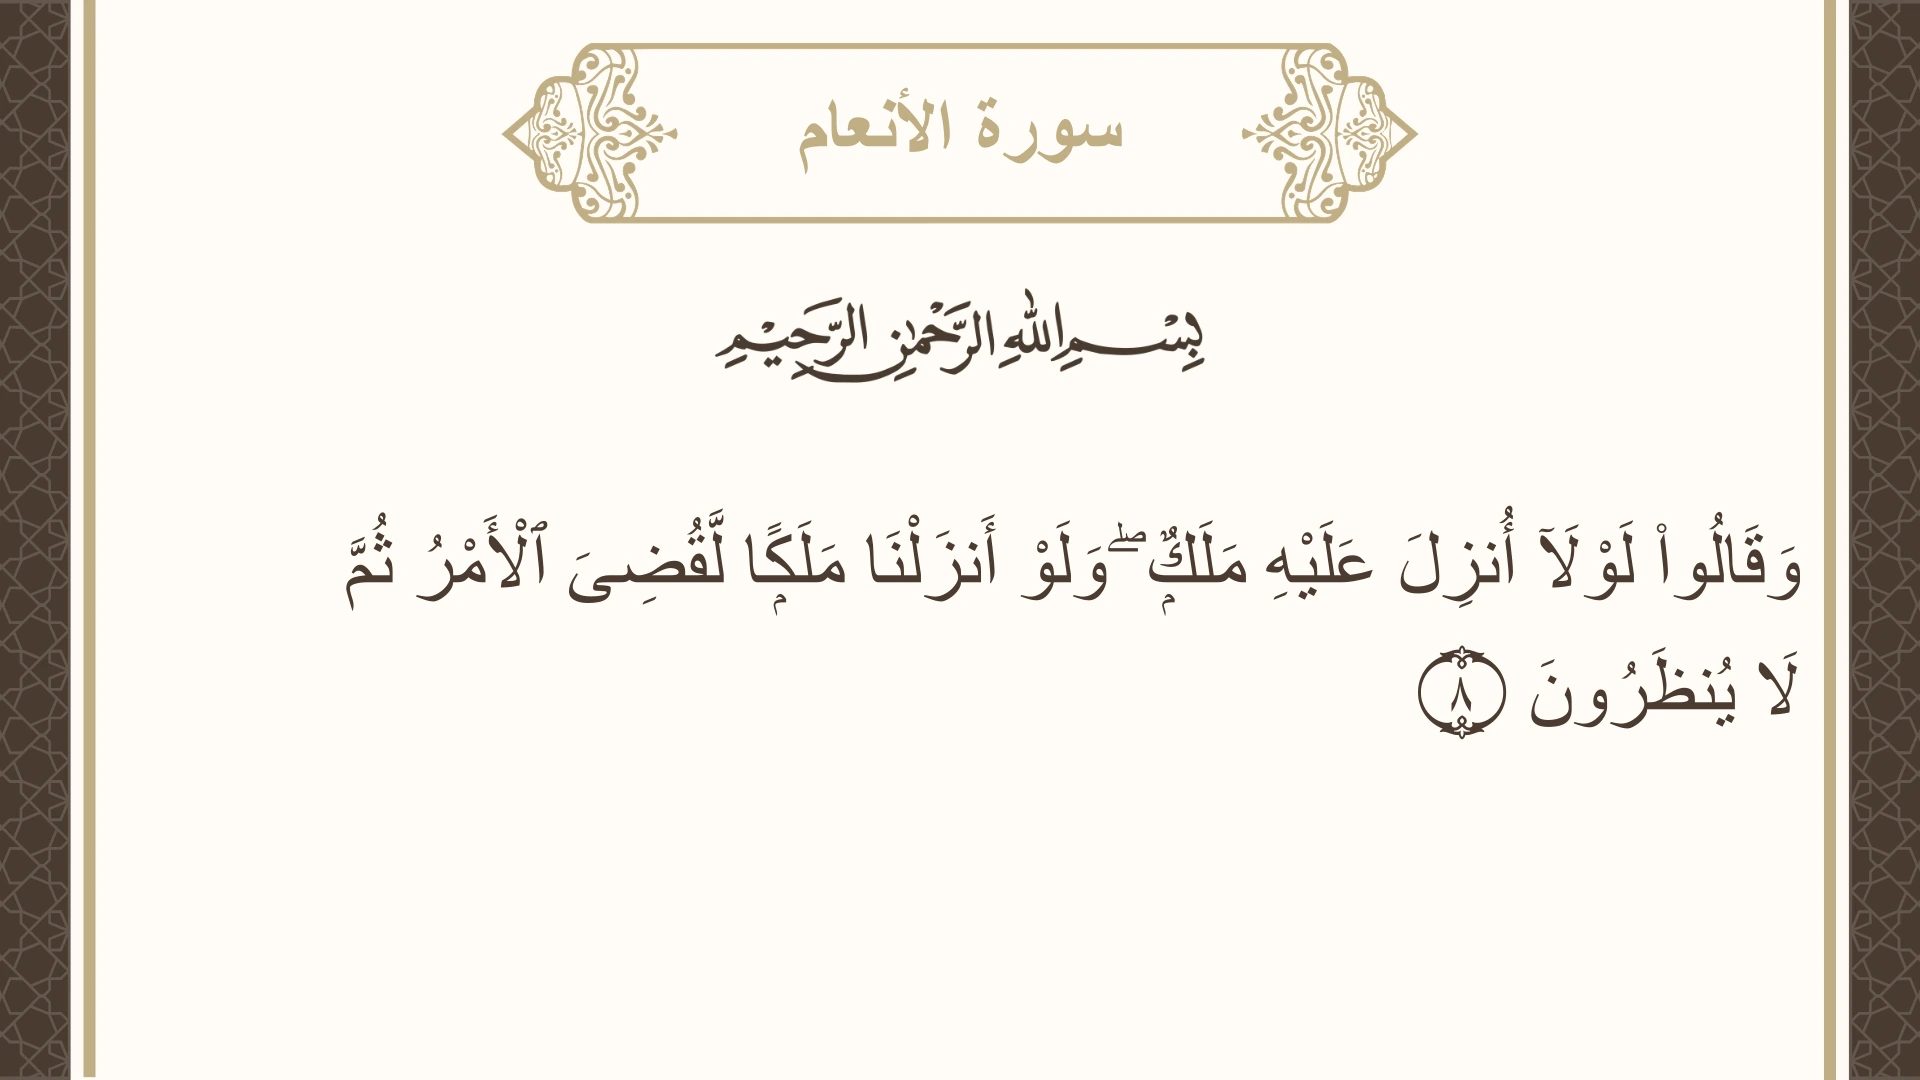 سورة الأنعام
بِسْمِ اللهِ الرَّحْمٰنِ الرَّحِيْمِ
وَقَالُوا۟ لَوْلَآ أُنزِلَ عَلَيْهِ مَلَكٌۭ ۖ وَلَوْ أَنزَلْنَا مَلَكًۭا لَّقُضِىَ ٱلْأَمْرُ ثُمَّ
لَا يُنظَرُونَ ٨